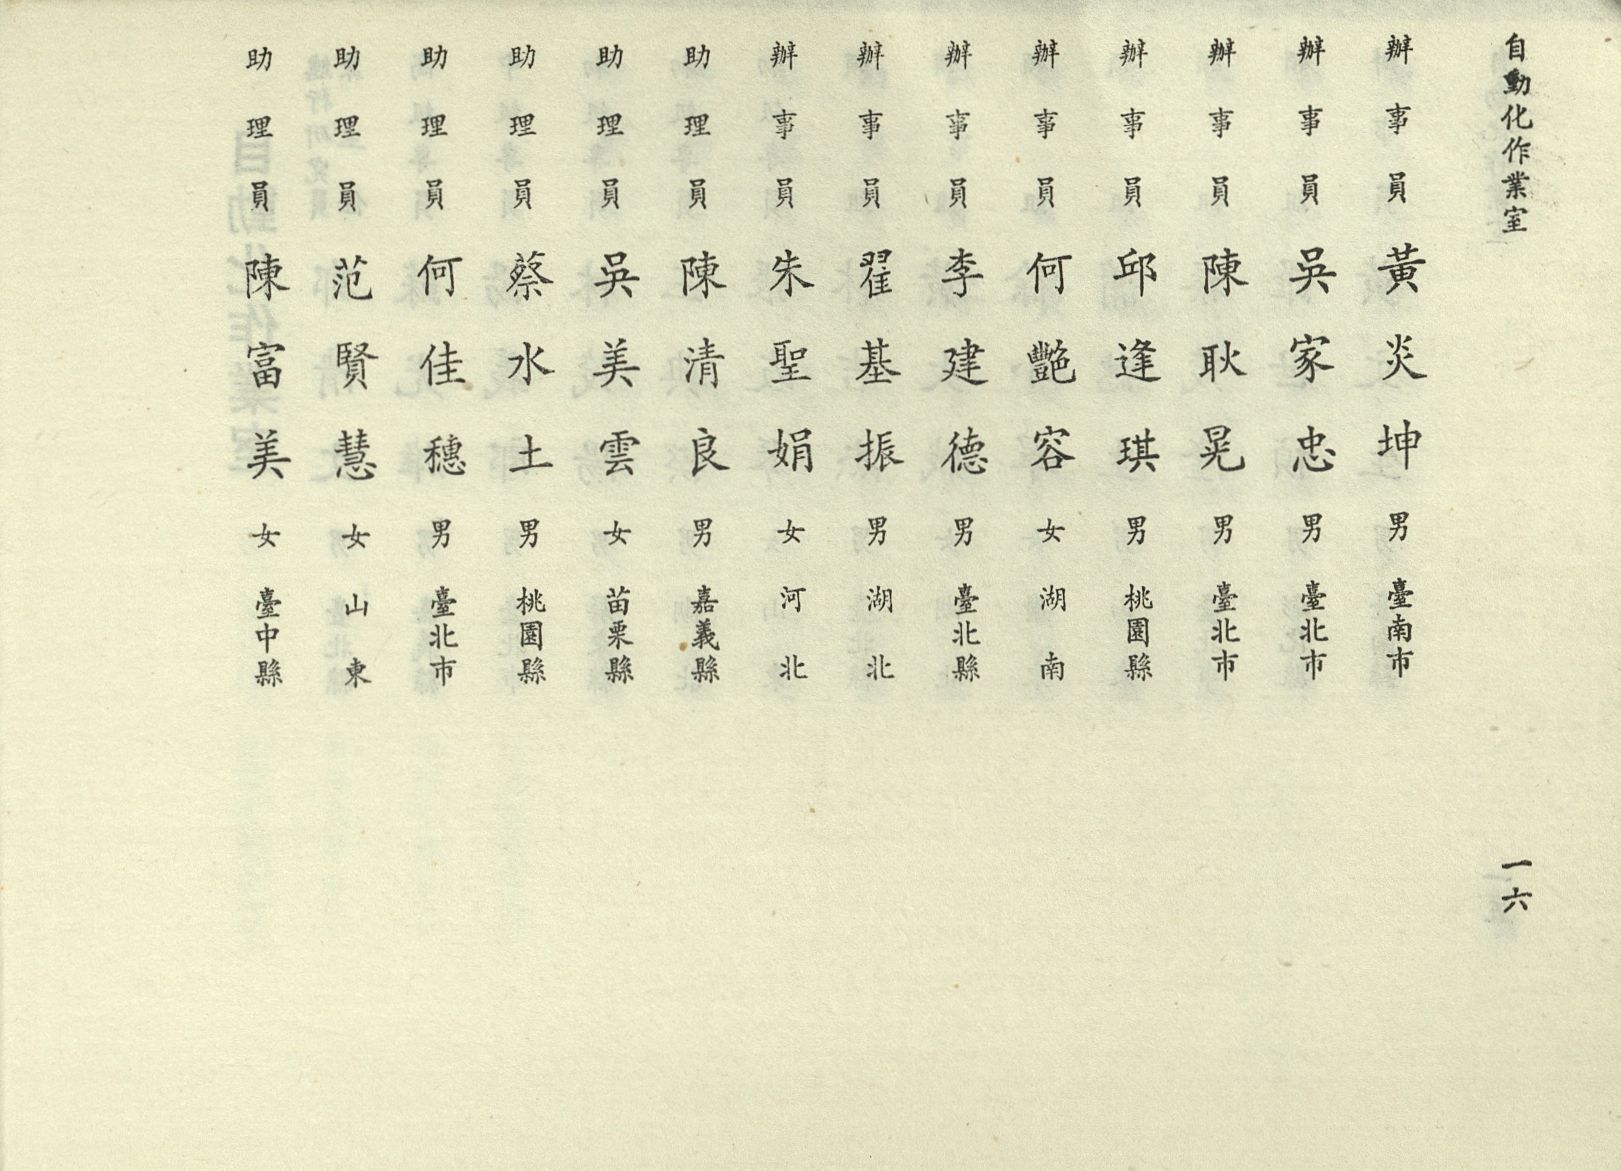 自動化作業室
一六
辦事員 黃炎坤 男 臺南市
辦事員 吳家忠 男 臺北市
辦事員 陳耿晃 男 臺北市
辦事員 邱逢琪 男 桃園縣
辦事員 何艷容 女 湖南
辦事員 李建德 男 臺北縣
辦事員 翟基振 男 湖北
辦事員 朱聖娟 女 河北
助理員 陳清良 男 嘉義縣
助理員 吳美雲 女 苗栗縣
助理員 蔡水土 男 桃園縣
助理員 何佳穗 男 臺北市
助理員 范賢慧 女 山東
助理員 陳富美 女 臺中縣